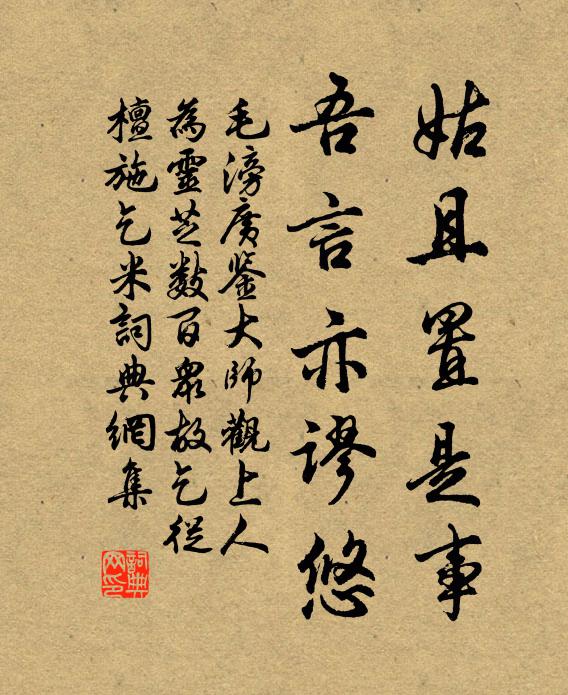 姑且置是事
吾言亦謬悠
毛滂廣鉴大師觀上人
為靈芝數百衆故乞從
檀施乞米詞典網集
詞典网印